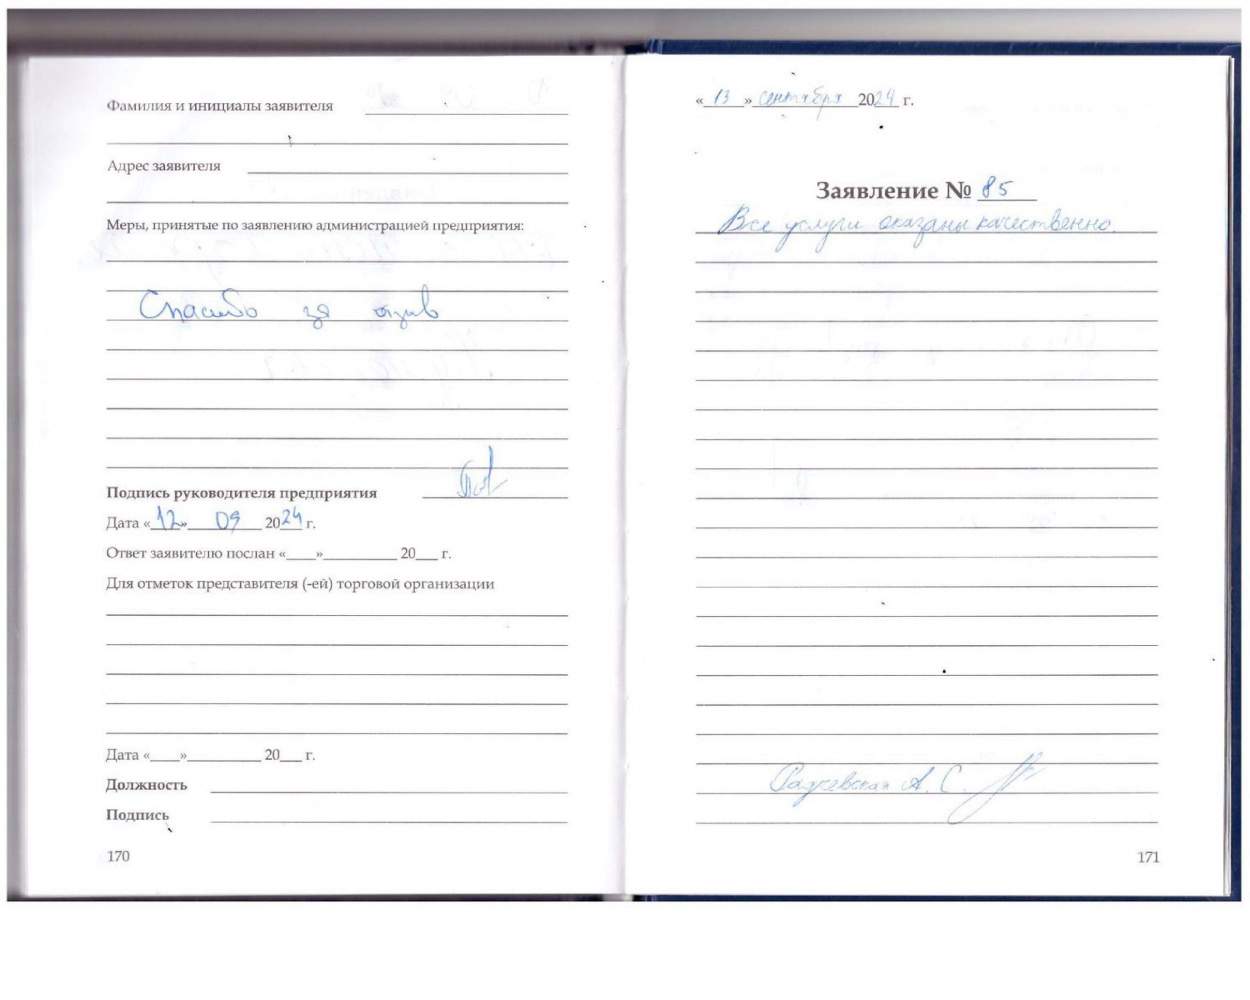 Фамилия и инициалы заявителя
Адрес заявителя
Меры, принятые по заявлению администрацией предприятия:
Спасибо за отзыв
Подпись руководителя предприятия
Дата «12» 09 2024 г.
Ответ заявителю послан «____»__________ 20___ г.
Для отметок представителя (-ей) торговой организации
Дата «____»__________ 20___ г.
Должность
Подпись
170
«13» сентября 2024 г.
Заявление № 85
Все услуги оказаны качественно.
А. С.
171